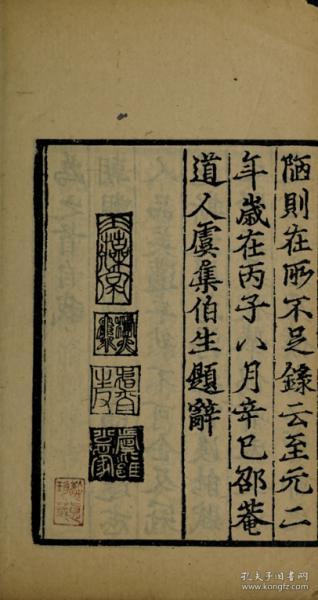 陋則在所不足錄云至元二
年歲在丙子八月辛巳邵菴
道人虞集伯生題辭
孔夫子旧书网